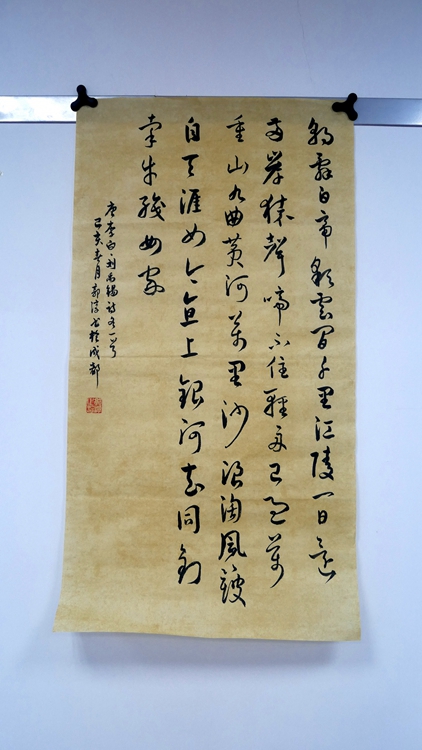 朝辭白帝彩雲間千里江陵一日還
兩岸猿聲啼不住輕舟已過萬
重山九曲黃河萬里沙浪淘風簸
自天涯如今直上銀河去同到
牽牛織女家
唐李白劉禹錫詩各一首
己亥春月郭書於成都